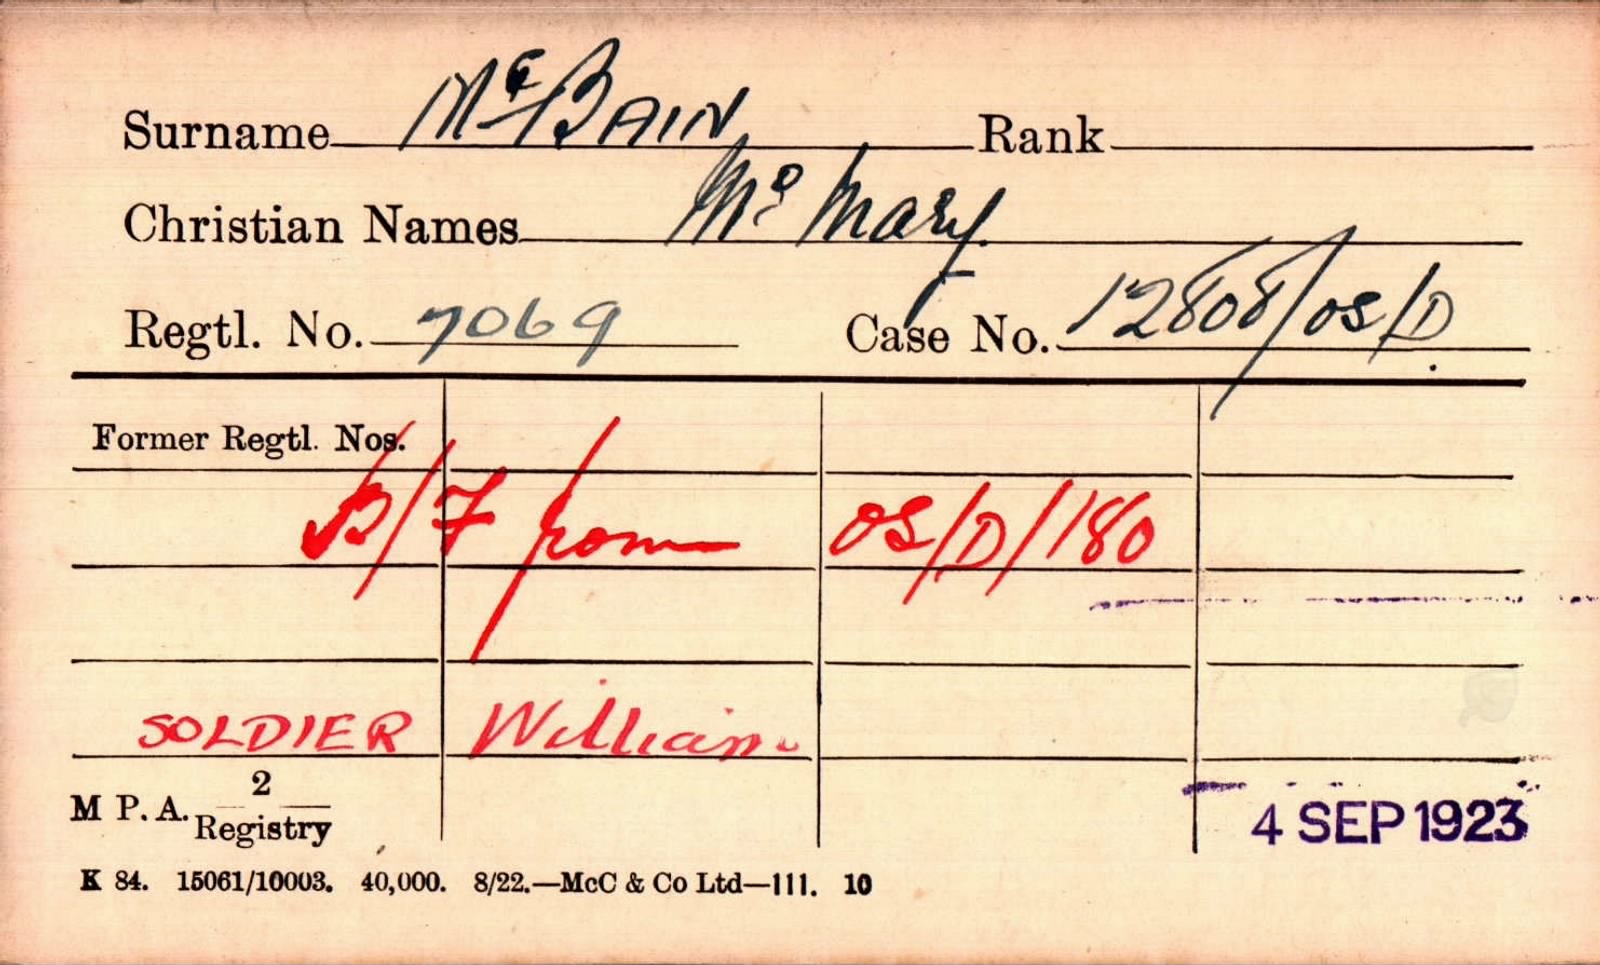 Surname McBAIN Rank
Christian Names Mrs Mary.
Regtl. No. 7069 Case No. 12808/OS/D.
Former Regtl. Nos.
B/F from OS/D/180
SOLDIER William
M P.A. 2
Registry
4 SEP 1923
K 84. 15061/10003. 40,000. 8/22.—McC & Co Ltd—111. 10